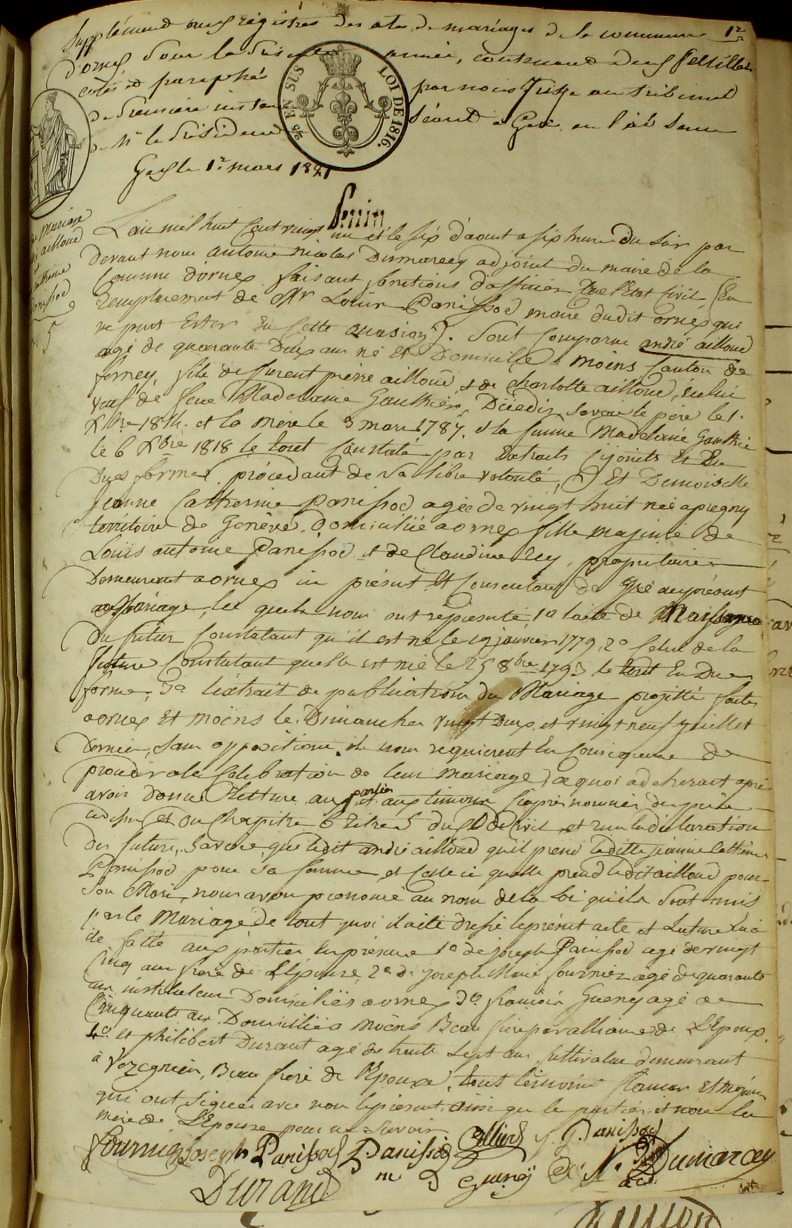 Supplément aux régistres des actes de mariages de la commune 1er
d'ornex pour la présente année, contenant deux feuillets
cotés et paraphés par nous juge au tribunal
de Première instance séant à Gex, en l'absence
de Mr le Président
Gex le 1er mars 1821
EN SUS LOI DE 1816.
Perrin
de Mariage
ailloud
L'an mil huit cent vingt un et le six d'aout a six heures Du soir par
devant nous antoine nicolas Dumarcey adjoint du maire de la
Commune d'ornex faisant fonctions d'officier De l'Etat Civil (en
remplacement de Mr Louis Panissod maire dudit ornex qui
ne peut Ester En Cette occasion). Sont Comparus andré ailloud
agé de quarante Deux ans né Et Domicilié a moins Canton de
ferney, fils de pierre ailloud, et de charlotte ailloud,
veuf de feue Madelaine Gauthier, Décédés savoir le père le 1
Xbre 1814. et la Mère le 3 mars 1787. et la femme Madelaine Gauthier
le 6 Xbre 1818 le tout Constaté par Extraits cijoints En Due
forme, procédant de sa libre volonté, Et Demoiselle
Jeanne Catherine panissod agée de vingt huit née a pregny
territoire de Genève. Domiciliée a ornex fille majeure de
Louis antoine Panissod et de Claudine, propriétaires
Demeurant a ornex ici présent Et Consentant de Gré au présent
Mariage, les quels nous ont représenté, 1o l'acte de Naissance
Du futur Constatant qu'il est né le 19 janvier 1779, 2o Celui de la
future Constatant quelle est née le 25 8bre 1793 le tout En Due
forme, 3o l'extrait de publication du Mariage projetté faite
a ornex Et moins les Dimanches vingt Deux et vingt neuf juillet
dernier, sans opposition. et nous requierent En Conséquence de
procéder a la Célébration de leur mariage, a quoi adhérant après
avoir Donné lecture aux parties et aux témoins ci après nommés des pièces
ci dessus et Du Chapitre 6 titre 5 du Code Civil et sur la déclaration
des futurs, Savoir que ledit andré ailloud qu'il prend ladite jeanne Catherine
Panissod pour sa femme et Celle ci quelle prend ledit ailloud pour
Son Mari, nous avons prononcé au nom de la Loi qu'ils Sont unis
par le Mariage, De tout quoi il a été Dressé le présent acte et lecture
de faite aux parties En présence 1o de joseph Panissod agé de vingt
Cinq ans frère de L'Epouse, 2o de joseph Marie fournier agé de quarante
un instituteur Domiciliés a ornex 3o françois Gueney agé de
Cinquante ans Domicilié a Moins Beau frère par alliance de L'Epoux.
4o et philibert Durant agé de trente Sept ans Cultivateur demeurant
à Vezegnin, Beau frère de l'Epouse, tous témoins
qui ont Signés avec nous le présent ainsi que les parties, et non la
mère de L'Epouse pour ne Savoir
fournier Joseph Panissod Panissod ailliod J. J. Panissod
Durand Gueney A. N. Dumarcey